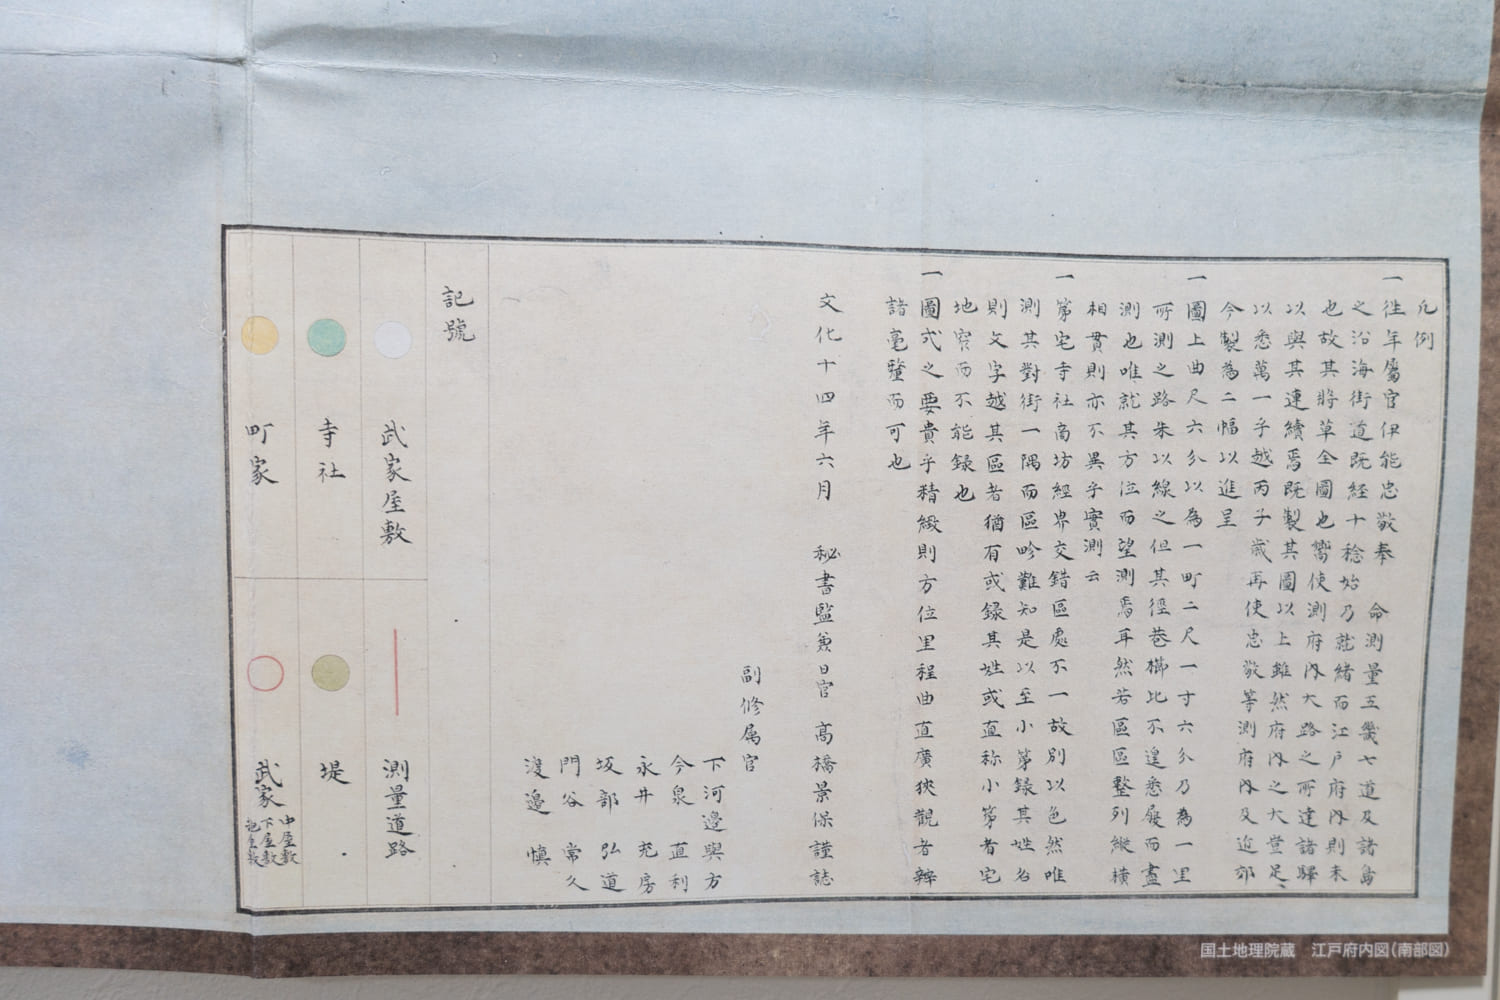 凡例
一往年屬官伊能忠敬奉　命測量五畿七道及諸島
之沿海街道既経十稔始乃就緒而江戸府内則未
也故其將草全圖也嚮使測府内大路之所達諸驛
以與其連續焉既製其圖以上雖然府内之大豈足
以悉萬一乎越丙子歳再使忠敬等測府内及近郊
今製為二幅以進呈
一圖上曲尺六分以為一町二尺一寸六分乃為一里
所測之路朱以線之但其徑巷櫛比不遑悉履而盡
測也唯就其方位而望測焉耳然若區區整列縱横
相貫則亦不異乎實測云
一第宅寺社商坊經界交錯區處不一故別以色然唯
測其對街一隅而區畛難知是以至小第録其姓名
則文字越其區者猶有或録其姓或直称小第者宅
地窄而不能録也
一圖式之要貴乎精緻則方位里程曲直廣狹觀者辨
諸毫釐而可也
文化十四年六月　秘書監兼日官　髙橋景保謹誌
副修属官
下河邉與方
今泉　直利
永井　充房
坂部　弘道
門谷　常久
渡邉　慎
記號
武家屋敷
測量道路
寺社
堤
町家
武家
中屋敷
下屋敷
国土地理院蔵　江戸府内図(南部図)